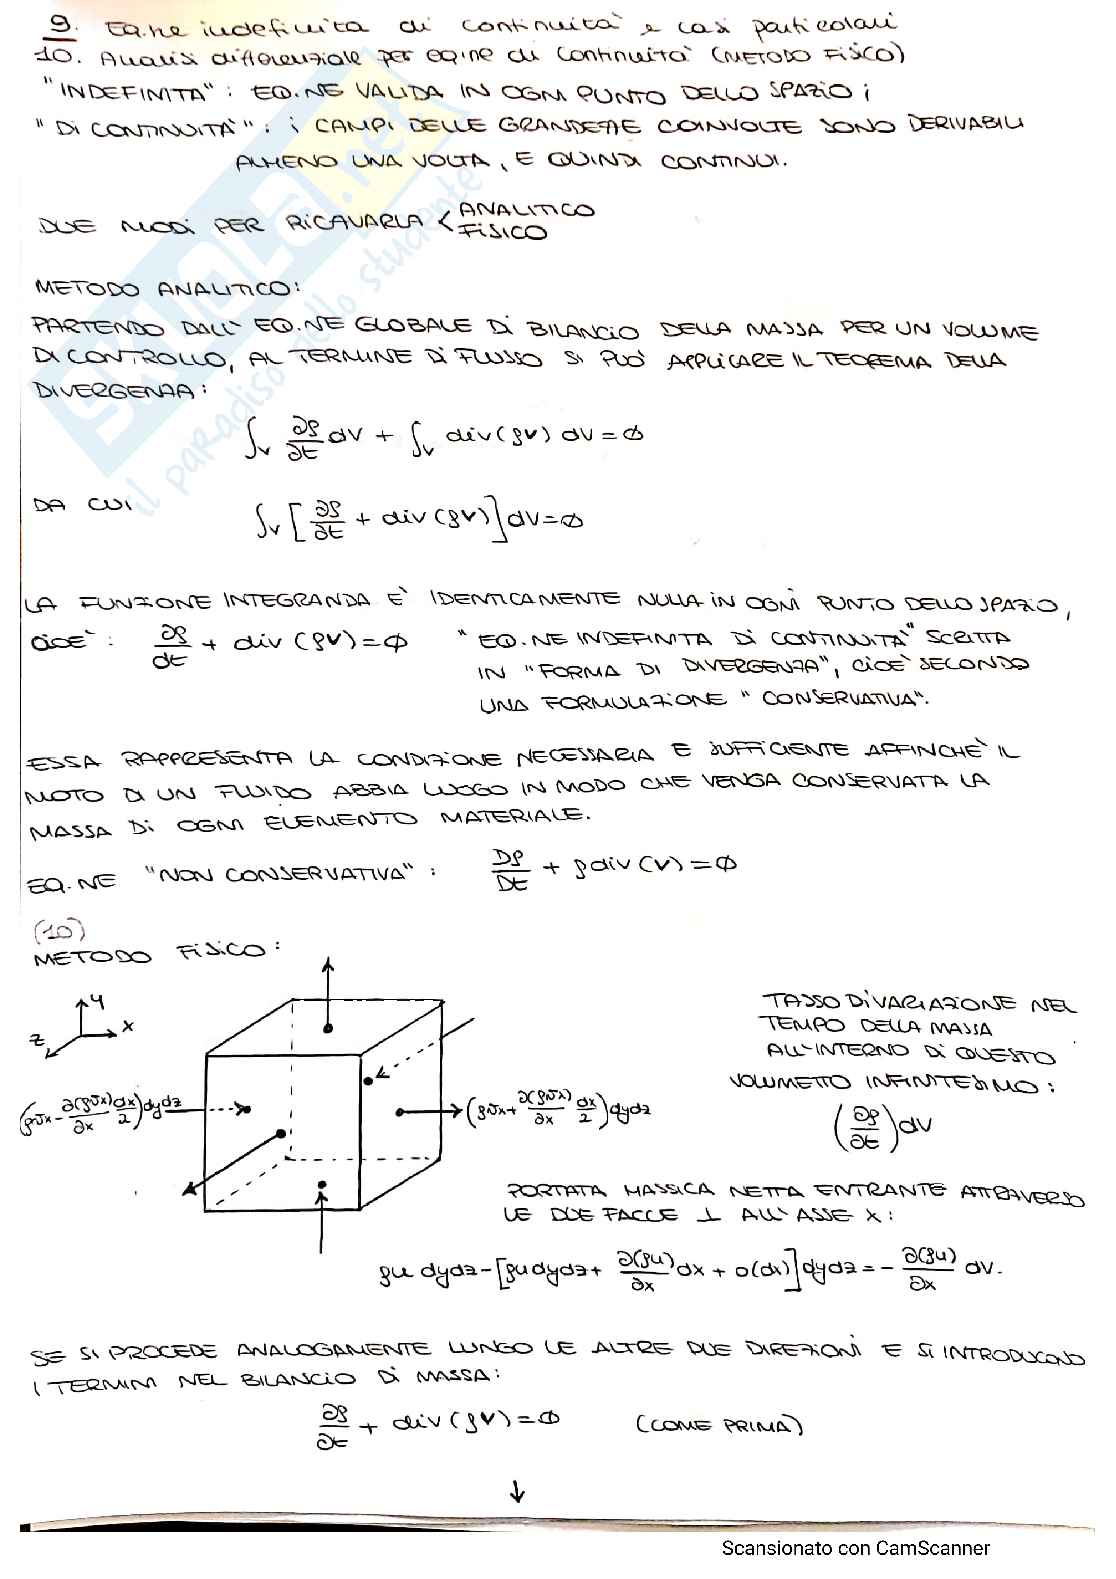 9. Eq.ne indefinita di continuità e casi particolari
10. Analisi differenziale per eq.ne di continuità (METODO FISICO)
"INDEFINITA": EQ.NE VALIDA IN OGNI PUNTO DELLO SPAZIO;
"DI CONTINUITÀ": i CAMPI DELLE GRANDEZZE COINVOLTE SONO DERIVABILI
ALMENO UNA VOLTA, E QUINDI CONTINUI.
DUE MODI PER RICAVARLA < ANALITICO
FISICO
METODO ANALITICO:
PARTENDO DALL'EQ.NE GLOBALE DI BILANCIO DELLA MASSA PER UN VOLUME
DI CONTROLLO, AL TERMINE DI FLUSSO SI PUÒ APPLICARE IL TEOREMA DELLA
DIVERGENZA:
∫v ∂ρ/∂t dV + ∫v div(ρv) dV = Ø
DA CUI
∫v [∂ρ/∂t + div(ρv)] dV = Ø
LA FUNZIONE INTEGRANDA È IDENTICAMENTE NULLA IN OGNI PUNTO DELLO SPAZIO,
CIOÈ: ∂ρ/∂t + div(ρv) = Ø "EQ.NE INDEFINITA DI CONTINUITÀ" SCRITTA
IN "FORMA DI DIVERGENZA", CIOÈ SECONDO
UNA FORMULAZIONE "CONSERVATIVA".
ESSA RAPPRESENTA LA CONDIZIONE NECESSARIA E SUFFICIENTE AFFINCHÈ IL
MOTO DI UN FLUIDO ABBIA LUOGO IN MODO CHE VENGA CONSERVATA LA
MASSA DI OGNI ELEMENTO MATERIALE.
EQ.NE "NON CONSERVATIVA": Dρ/Dt + ρ div(v) = Ø
(10)
METODO FISICO:
y
x
z
(ρvx - ∂(ρvx)/∂x dx/2) dydz
(ρvx + ∂(ρvx)/∂x dx/2) dydz
TASSO DI VARIAZIONE NEL
TEMPO DELLA MASSA
ALL'INTERNO DI QUESTO
VOLUMETTO INFINITESIMO:
(∂ρ/∂t) dV
PORTATA MASSICA NETTA ENTRANTE ATTRAVERSO
LE DUE FACCE ⊥ ALL'ASSE X:
ρu dydz - [ρu dydz + ∂(ρu)/∂x dx + o(dx)] dydz = - ∂(ρu)/∂x dV.
SE SI PROCEDE ANALOGAMENTE LUNGO LE ALTRE DUE DIREZIONI E SI INTRODUCONO
I TERMINI NEL BILANCIO DI MASSA:
∂ρ/∂t + div(ρv) = Ø (COME PRIMA)
↓
Scansionato con CamScanner
skuola.net
il paradiso dello studente